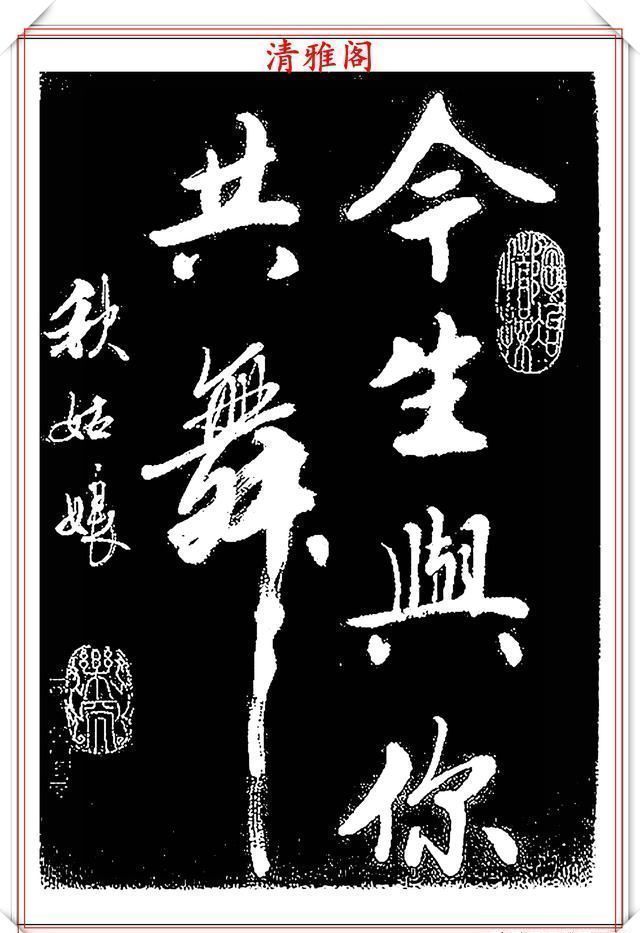 清雅阁
今生與你
共舞
秋姑娘